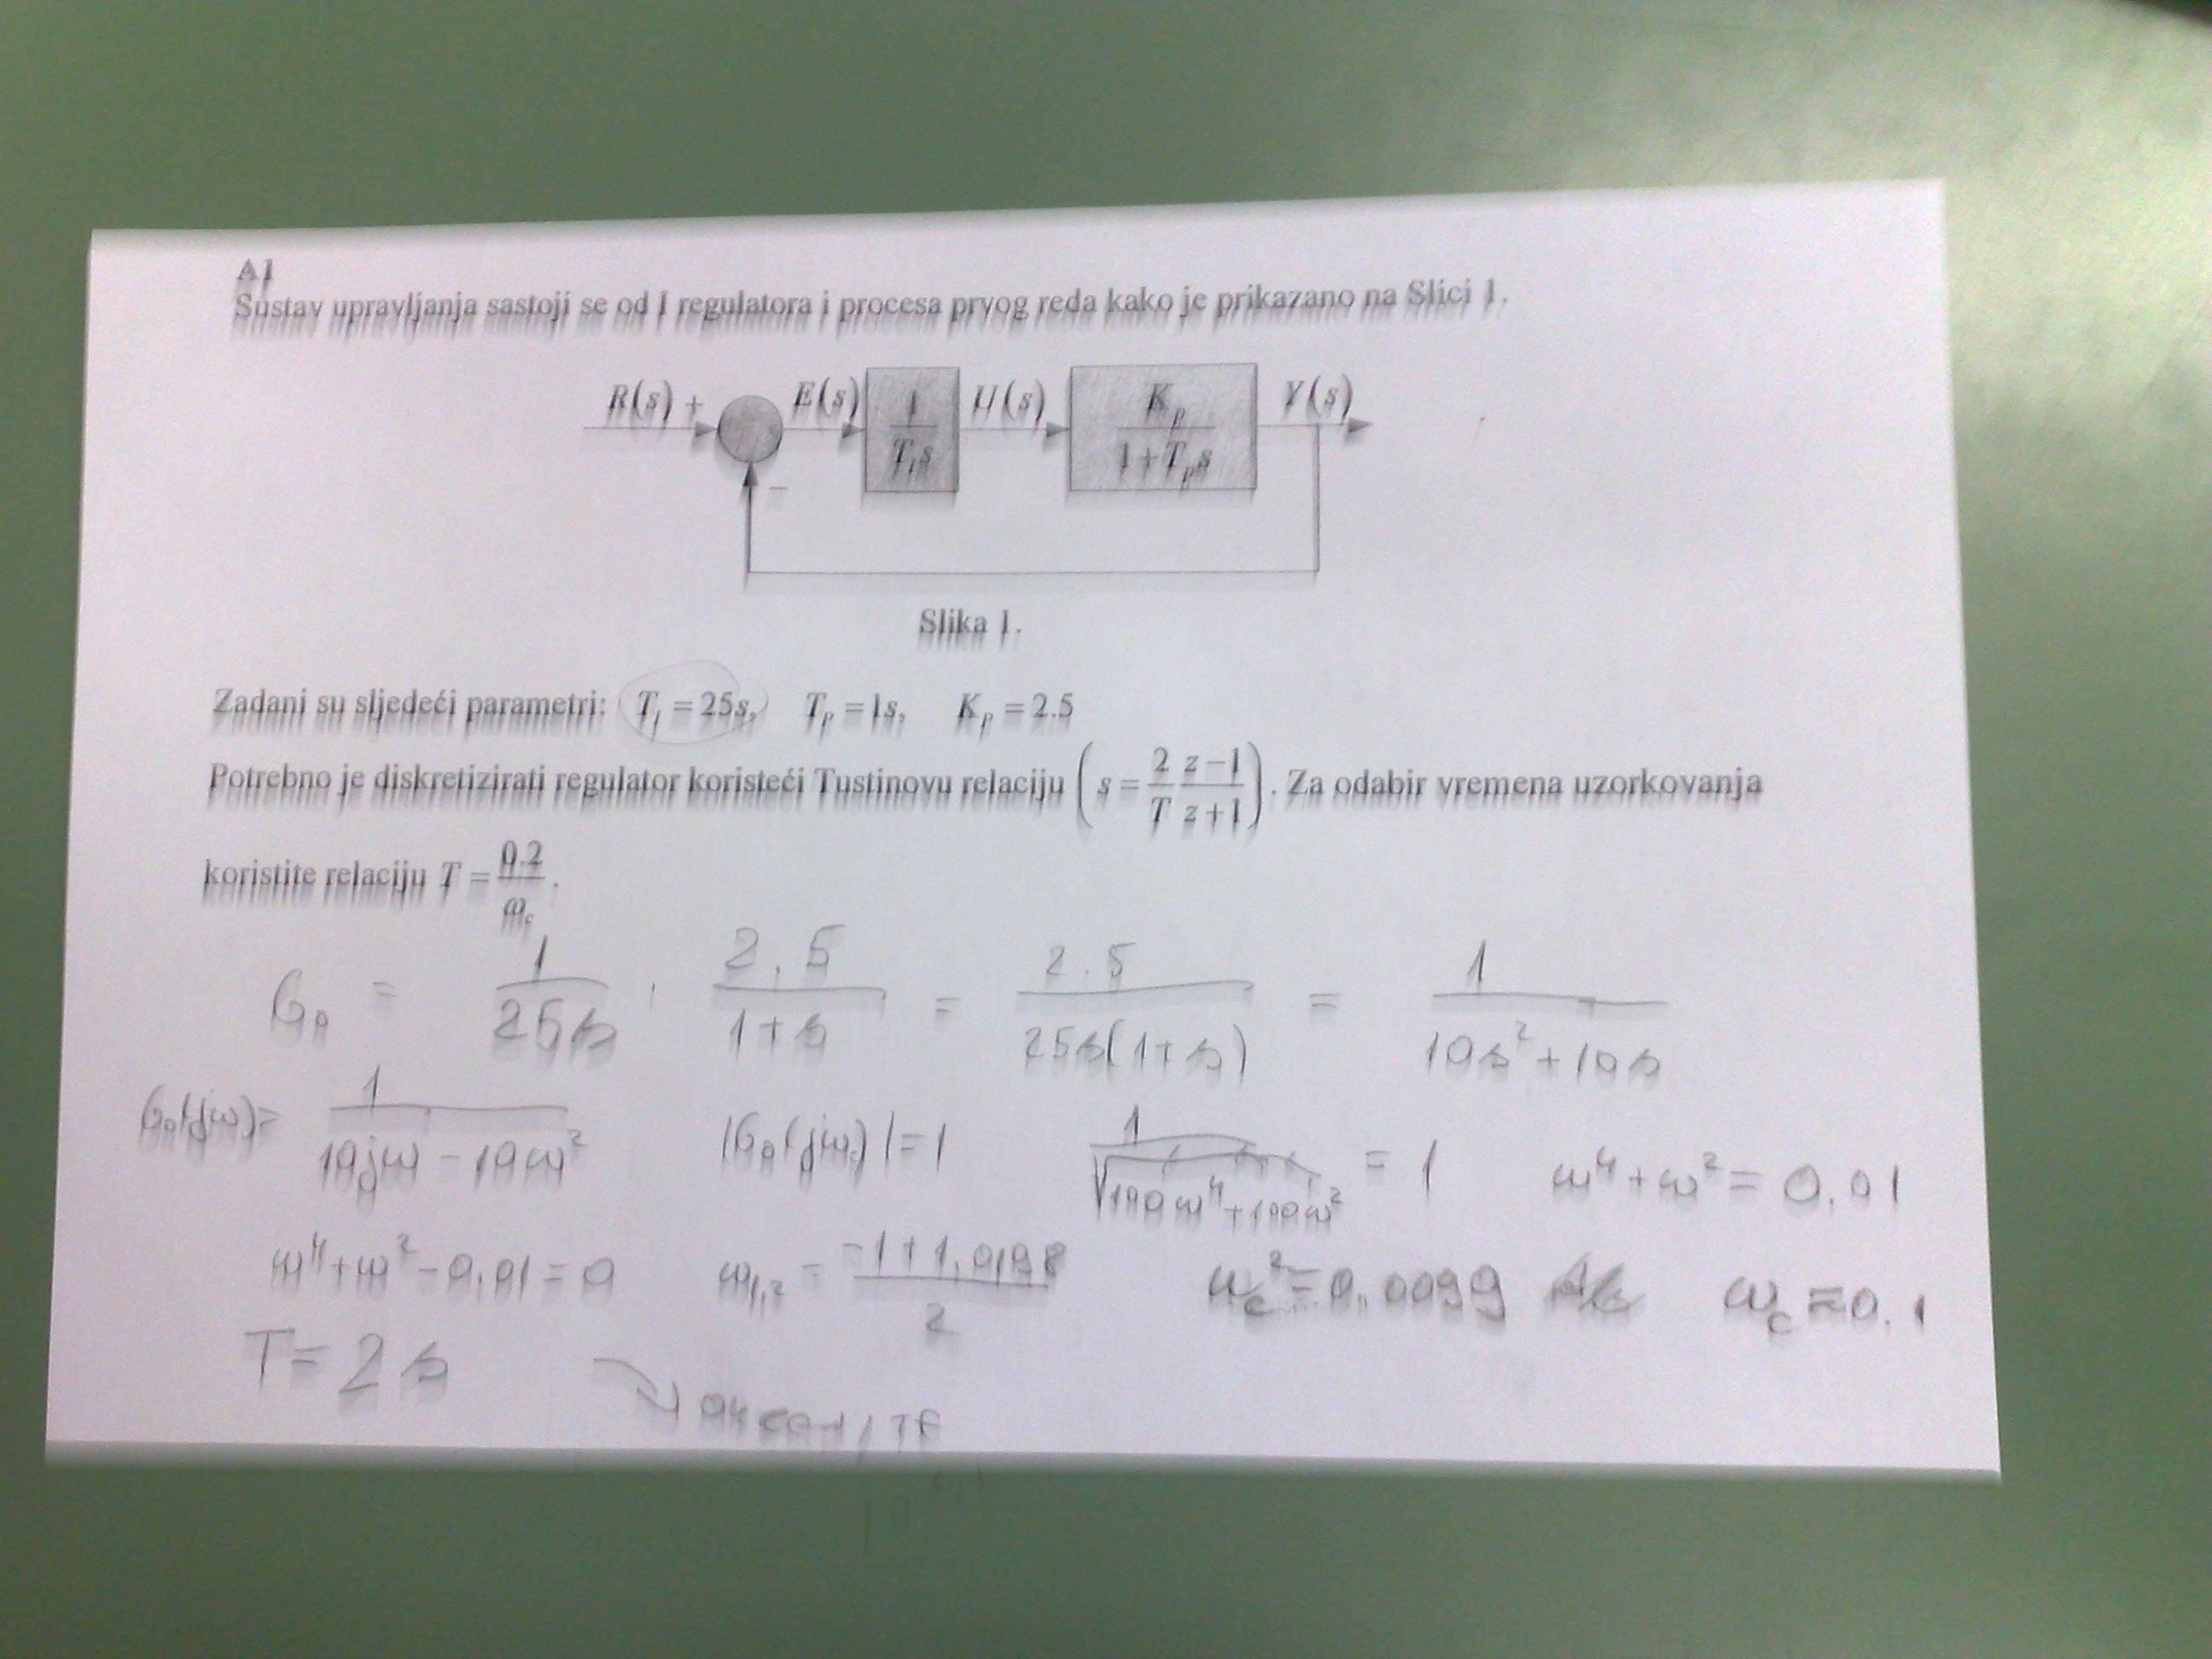 A1
Sustav upravljanja sastoji se od I regulatora i procesa prvog reda kako je prikazano na Slici 1.
R(s) + E(s) 1/(T_I s) U(s) K_p/(1+T_p s) Y(s)
−
Slika 1.
Zadani su sljedeći parametri: T_I = 25s, T_p = 1s, K_p = 2.5
Potrebno je diskretizirati regulator koristeći Tustinovu relaciju (s = 2/T z−1/z+1). Za odabir vremena uzorkovanja
koristite relaciju T = 0.2/ω_c.
G_0 = 1/25s · 2,5/1+s = 2.5/25s(1+s) = 1/10s²+10s
G_0(jω)= 1/10jω − 10ω² |G_0(jω_c)|=1 1/√100ω⁴+100ω² = 1 ω⁴+ω² = 0.01
ω⁴+ω²−0,01=0 ω_1,2 = −1+1,0198/2 ω_c²=0.0099 ω_c≈0.1
T= 2s